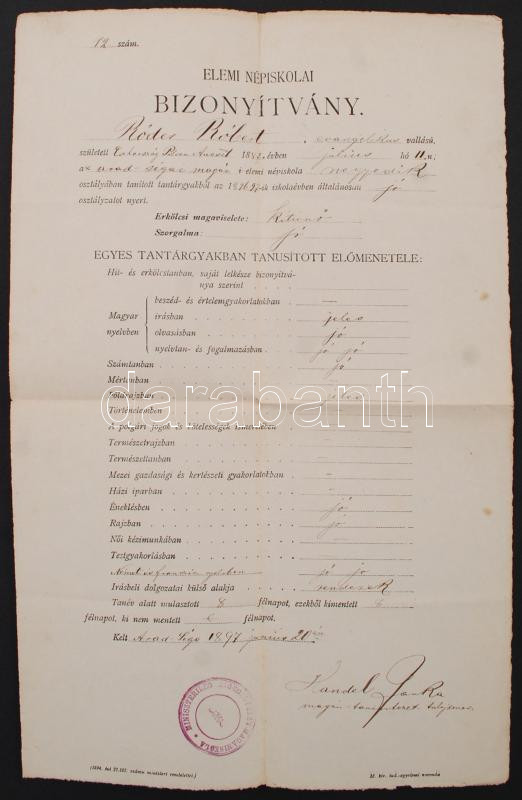 12 szám.
ELEMI NÉPISKOLAI
BIZONYÍTVÁNY.
Róder Róbert evangelikus vallású,
született 1882. évben július hó 11.n;
az arad-sigai magán elemi népiskola negyedik
osztályában tanított tantárgyakból az 1896/97-ik iskolaévben általánosan jó
osztályzatot nyert.
Erkölcsi magaviselete: kitünő
Szorgalma: jó
EGYES TANTÁRGYAKBAN TANUSÍTOTT ELŐMENETELE:
Hit- és erkölcstanban, saját lelkésze bizonyítvá-
nya szerint
beszéd- és értelemgyakorlatokban —
Magyar írásban jeles
nyelvben olvasásban jó
nyelvtan- és fogalmazásban jó jó
Számtanban jó
Mértanban
Földrajzban jeles
Történelemben
A polgári jogok és kötelességek ismeretében
Természetrajzban —
Természettanban —
Mezei gazdasági és kertészeti gyakorlatokban —
Házi iparban —
Éneklésben jó
Rajzban jó
Női kézimunkában —
Testgyakorlásban
Német és franczia nyelvben jó jó
Irásbeli dolgozatai külső alakja rendezett
Tanév alatt mulasztott 8 félnapot, ezekből kimentett 8
félnapot, ki nem mentett félnapot.
Kelt Arad-Siga 1897 junius 20án
Kandel Janka
magán-tanintézet tulajdonos
(1894. évi 21.123. számu miniszteri rendelethez)
M. kir. tud.-egyetemi nyomda
darabanth